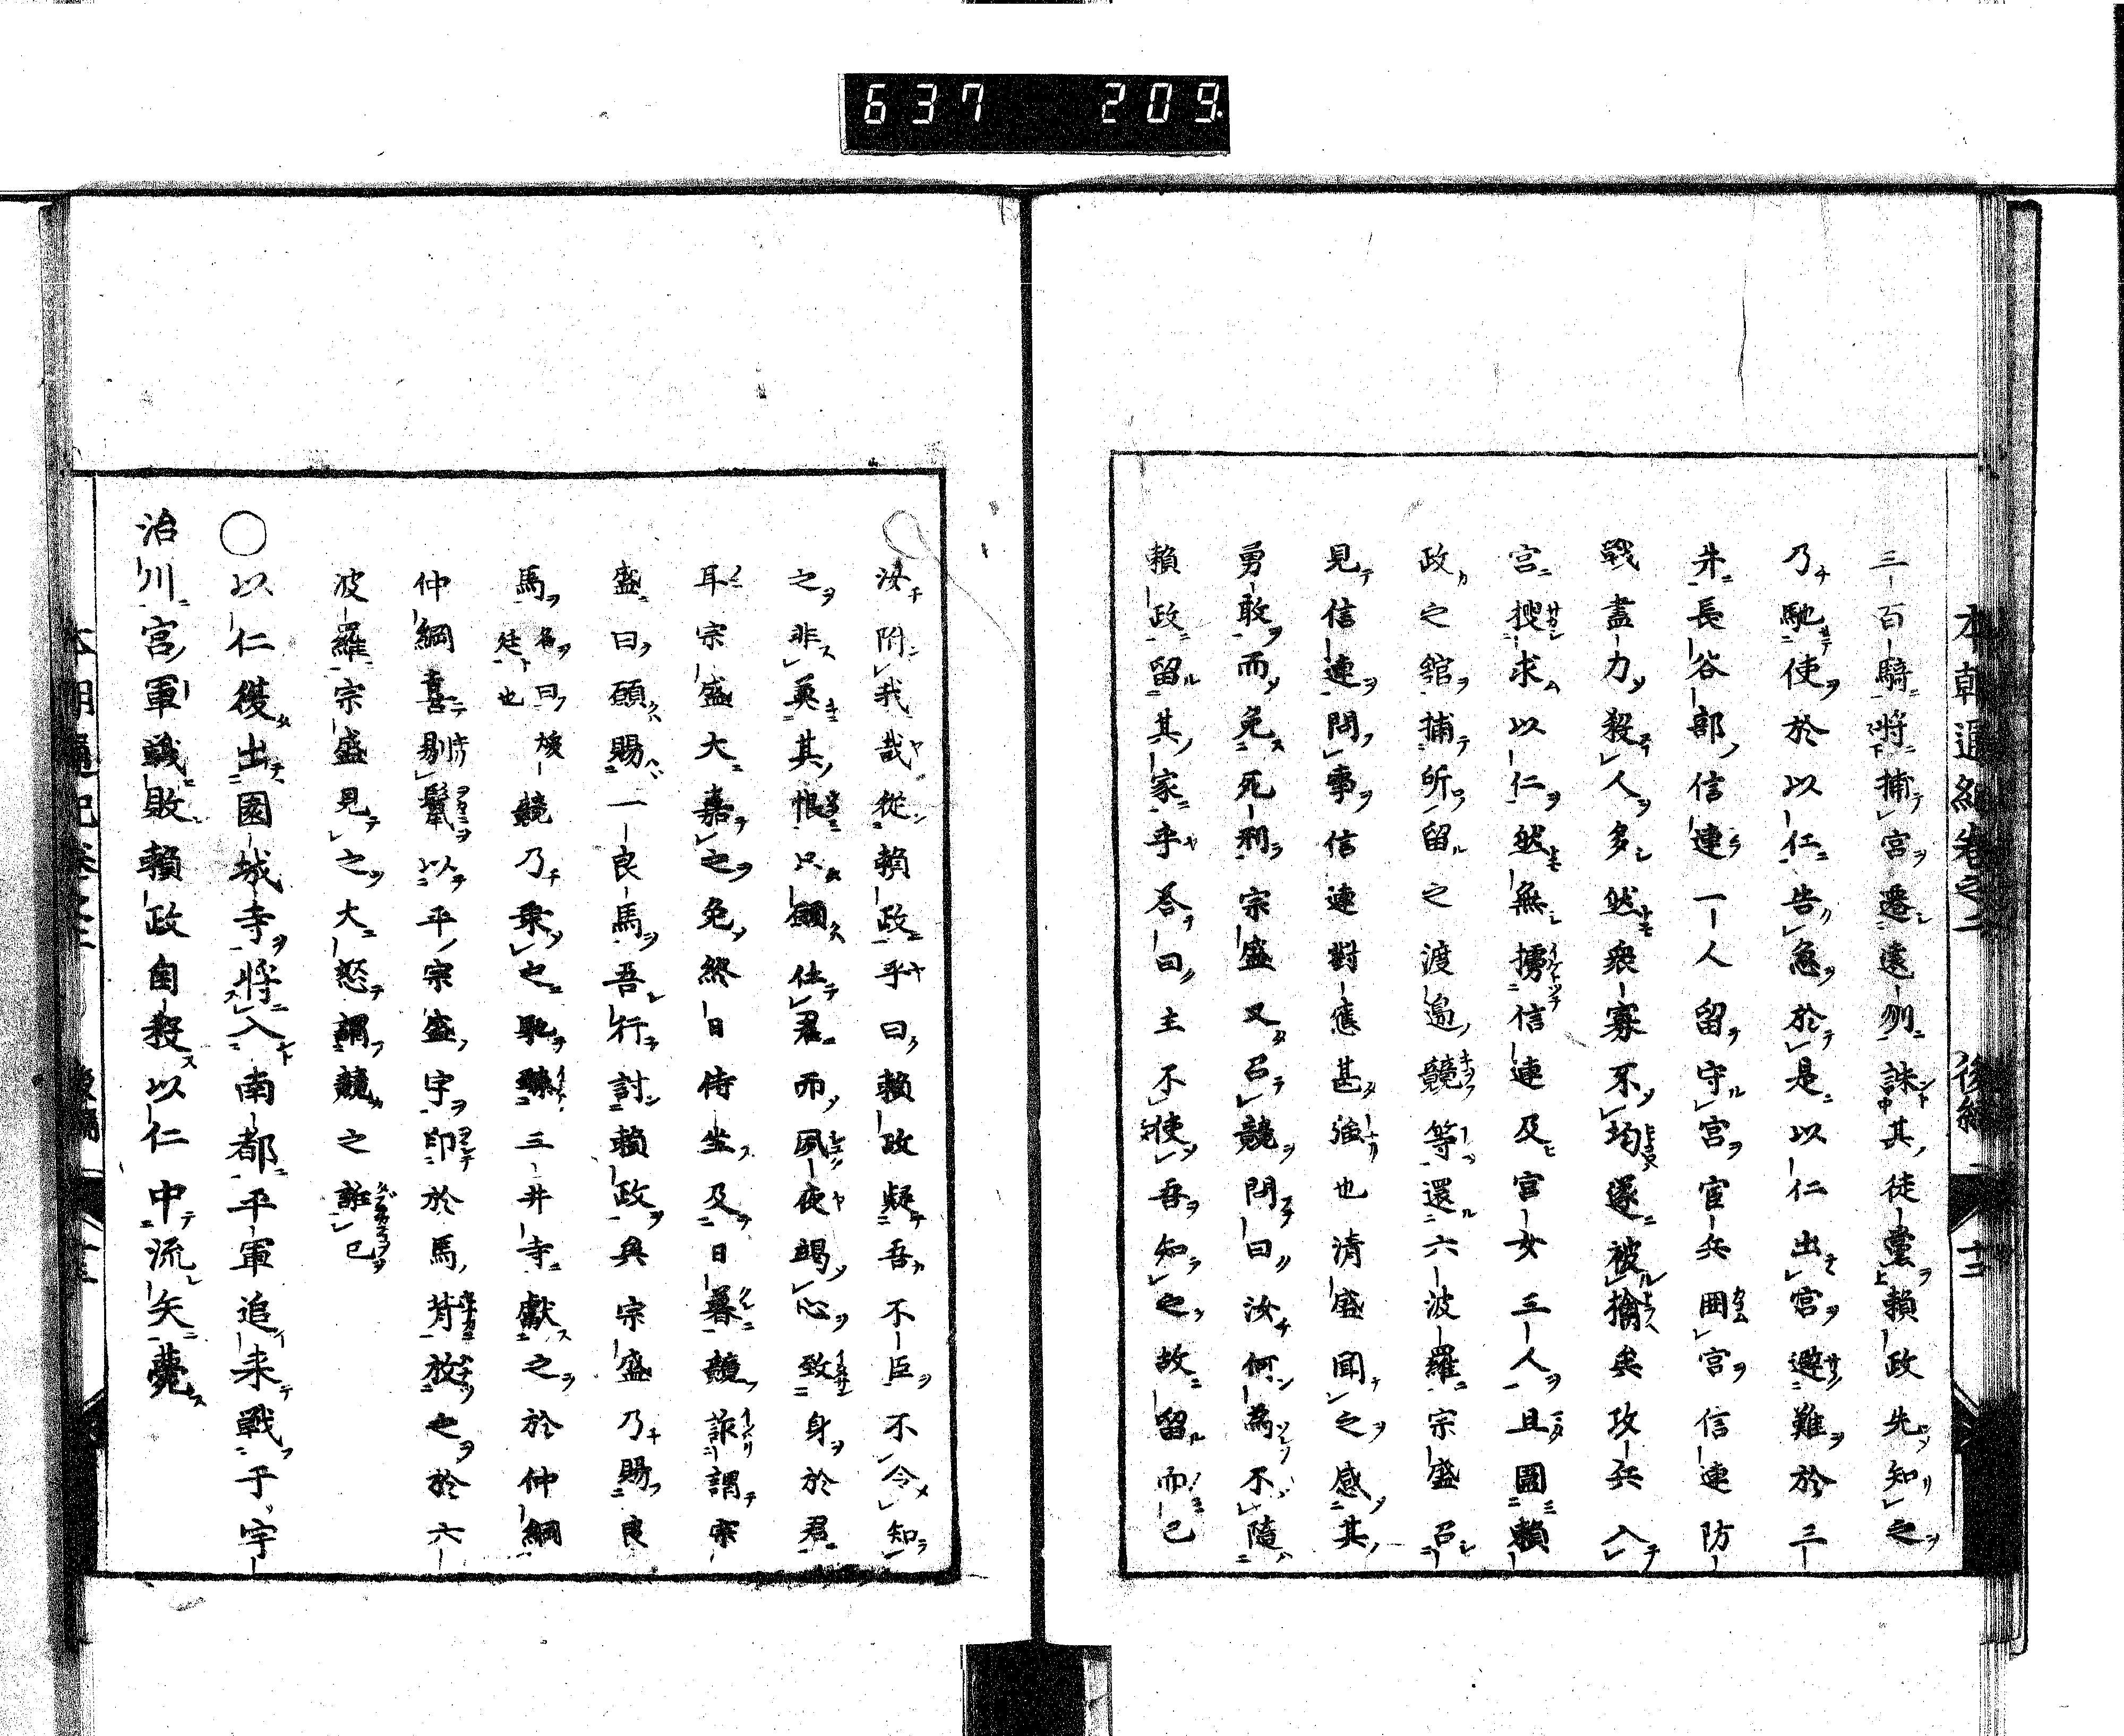 637 209
三百騎將捕宮遷遠列誅其徒黨賴政先知之
乃馳使於以仁告急於是以仁出宮避難於三
井長谷部信連一人留守宮官兵囲宮信連防
戰盡力殺人多然衆寡不均遂被擒矣攻兵入
宮搜求以仁然無攄信連及宮女三人且圍賴
政之舘捕所留之渡邉競等還六波羅宗盛召
見信連問事信連對應甚強也清盛聞之感其
勇敢而免死利宗盛又召競問曰汝何為不隨
賴政留其家乎答曰主不使吾知之故留而已
汝附我哉從賴政乎曰賴政疑吾不臣不令知
之非莫其恨只願仕君而夙夜竭心致身於君
耳宗盛大嘉之免終日侍坐及日暮競詐謂宗
盛曰願賜一良馬吾行討賴政與宗盛乃賜良
馬名曰煖廷也競乃乗之馳三井寺獻之於仲綱
仲綱喜剔鬣以平宗盛字印於馬背放之於六
波羅宗盛見之大怒謂競之誑已
〇以仁復出園城寺將入南都平軍追来戰于宇
治川宮軍戰敗賴政自殺以仁中流矢薨